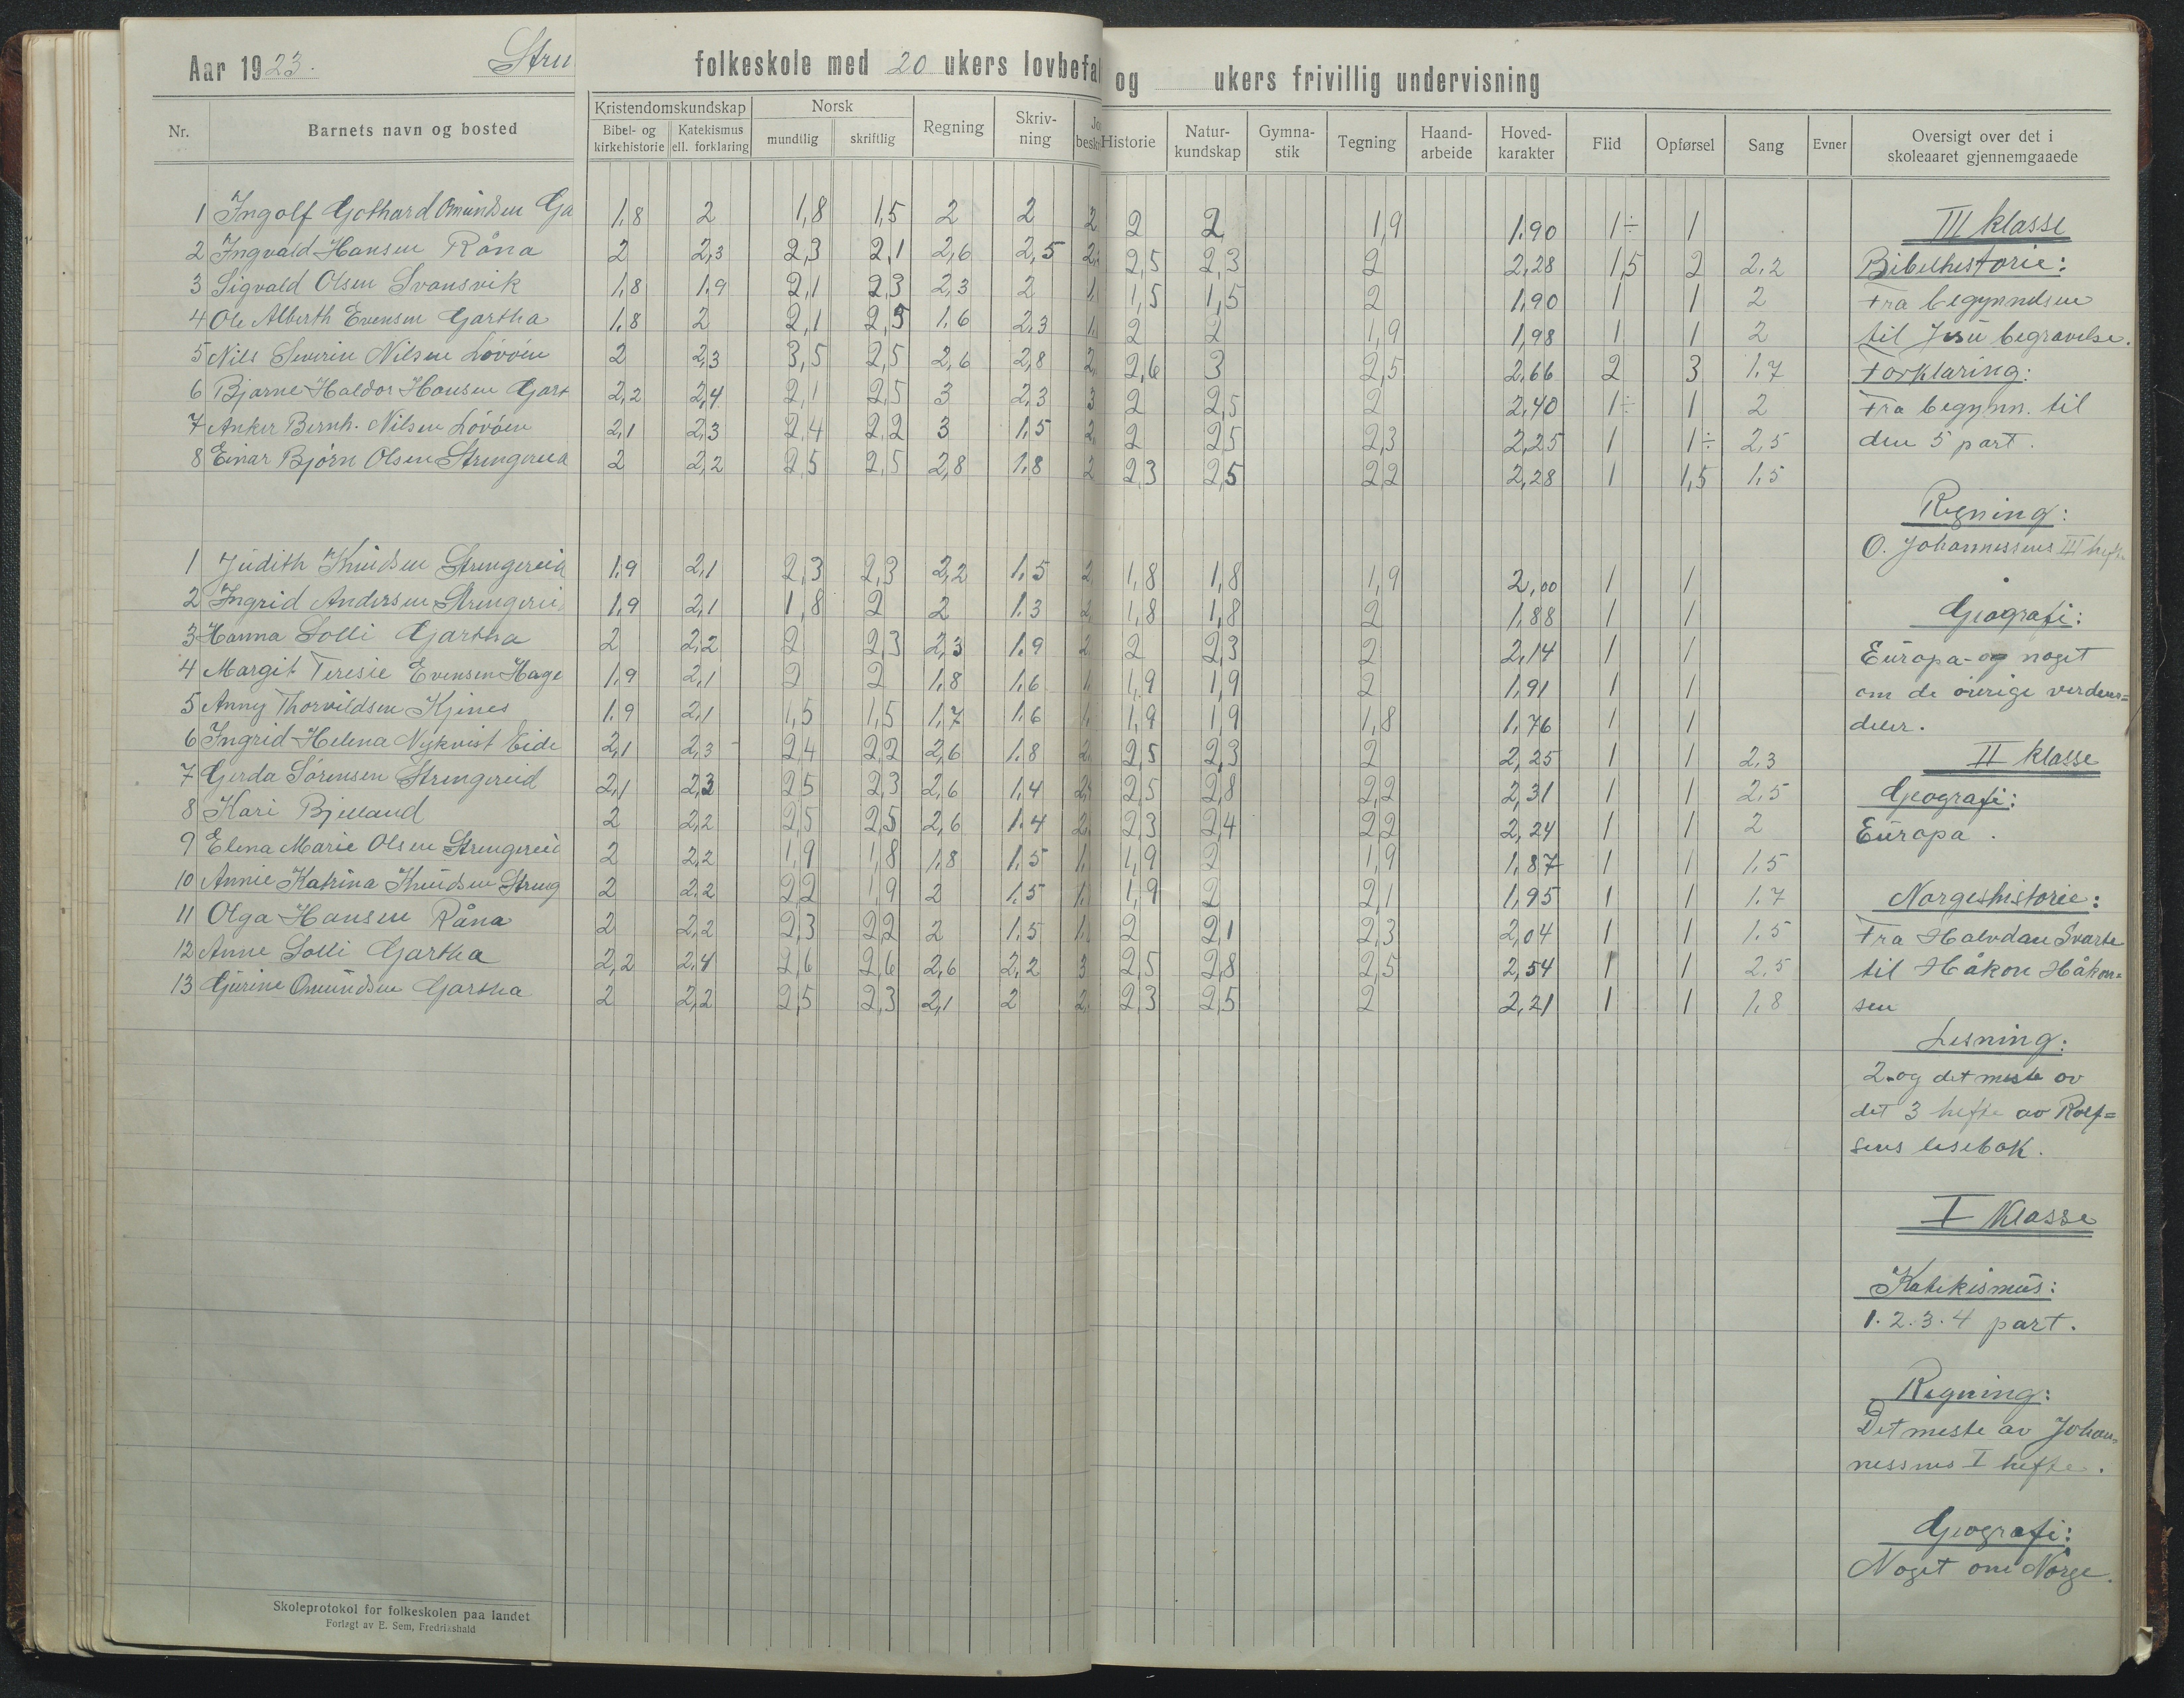 Aar 1923. Stru folkeskole med 20 ukers lovbefal og ukers frivillig undervisning
Nr. Barnets navn og bosted Kristendomskundskap Bibel- og kirkehistorie Katekismus ell. forklaring Norsk mundtlig skriftlig Regning Skriv-ning Jo besk Historie Natur-kundskap Gymna-stik Tegning Haand-arbeide Hoved-karakter Flid Opførsel Sang Evner Oversigt over det i skoleaaret gjennemgaaede
1 Ingolf Gothard Omundsen Ga 1,8 2 1,8 1,5 2 2 2 2 2 1,9 1,90 1÷ 1
2 Ingvald Hansen Råna 2 2,3 2,3 2,1 2,6 2,5 2, 2,5 2,3 2 2,28 1,5 2 2,2
3 Sigvald Olsen Svansvik 1,8 1,9 2,1 2,3 2,3 2 1, 1,5 1,5 2 1,90 1 1 2
4 Ole Alberth Evensen Gartha 1,8 2 2,1 2,5 1,6 2,3 1, 2 2 1,9 1,98 1 1 2
5 Nils Severin Nilsen Lövöen 2 2,3 3,5 2,5 2,6 2,8 2, 2,6 3 2,5 2,66 2 3 1,7
6 Bjarne Haldor Hansen Gart 2,2 2,4 2,1 2,5 3 2,3 3 2 2,5 2 2,40 1÷ 1 2
7 Anker Bernh. Nilsen Lövöen 2,1 2,3 2,4 2,2 3 1,5 2, 2 2,5 2,3 2,25 1 1÷ 2,5
8 Einar Björn Olsen Strengereid 2 2,2 2,5 2,5 2,8 1,8 2 2,3 2,5 2,2 2,28 1 1,5 1,5
1 Judith Knudsen Strengereid 1,9 2,1 2,3 2,3 2,2 1,5 2, 1,8 1,8 1,9 2,00 1 1
2 Ingrid Andersen Strengerei 1,9 2,1 1,8 2 2 1,3 2, 1,8 1,8 2 1,88 1 1
3 Hanna Solli Gartha 2 2,2 2 2,3 2,3 1,9 2 2 2,3 2 2,14 1 1
4 Margit Teresie Evensen Hage 1,9 2,1 2 2 1,8 1,6 1, 1,9 1,9 2 1,91 1 1
5 Anny Thorvildsen Kjenes 1,9 2,1 1,5 1,5 1,7 1,6 1, 1,9 1,9 1,8 1,76 1 1
6 Ingrid Helena Nykvist Eide 2,1 2,3 2,4 2,2 2,6 1,8 2, 2,5 2,3 2 2,25 1 1 2,3
7 Gerda Sörensen Strengereid 2,1 2,3 2,5 2,3 2,6 1,4 2, 2,5 2,8 2,2 2,31 1 1 2,5
8 Kari Bjelland 2 2,2 2,5 2,5 2,6 1,4 2, 2,3 2,4 2,2 2,24 1 1 2
9 Elena Marie Olsen Strengereid 2 2,2 1,9 1,8 1,8 1,5 1, 1,9 2 1,9 1,87 1 1 1,5
10 Annie Katrina Knudsen Streng 2 2,2 2,2 1,9 2 1,5 1, 1,9 2 2,1 1,95 1 1 1,7
11 Olga Hansen Råna 2 2,2 2,3 2,2 2 1,5 1, 2 2,1 2,3 2,04 1 1 1,5
12 Anne Solli Gartha 2,2 2,4 2,6 2,6 2,6 2,2 3 2,5 2,8 2,5 2,54 1 1 2,5
13 Gurine Omundsen Gartha 2 2,2 2,5 2,3 2,1 2 2, 2,3 2,5 2 2,21 1 1 1,8
III klasse
Bibelhistorie:
Fra begynndsen
til Jesu begravelse.
Forklaring:
Fra begynn. til
den 5 part.
Regning:
O. Johannessens III hefte
Geografi:
Europa - og noget
om de øvrige verdens=
deler.
II klasse
Geografi:
Europa.
Norgeshistorie:
Fra Halvdan Svarte
til Håkon Håkon=
sen
Lesning:
2 og det meste av
det 3 hefte av Rolf=
sens lesebok.
I klasse
Katekismus:
1. 2. 3. 4 part.
Regning:
Det meste av Johan=
nessens I hefte.
Geografi:
Noget om Norge.
Skoleprotokol for folkeskolen paa landet
Forlagt av E. Sem, Fredrikshald